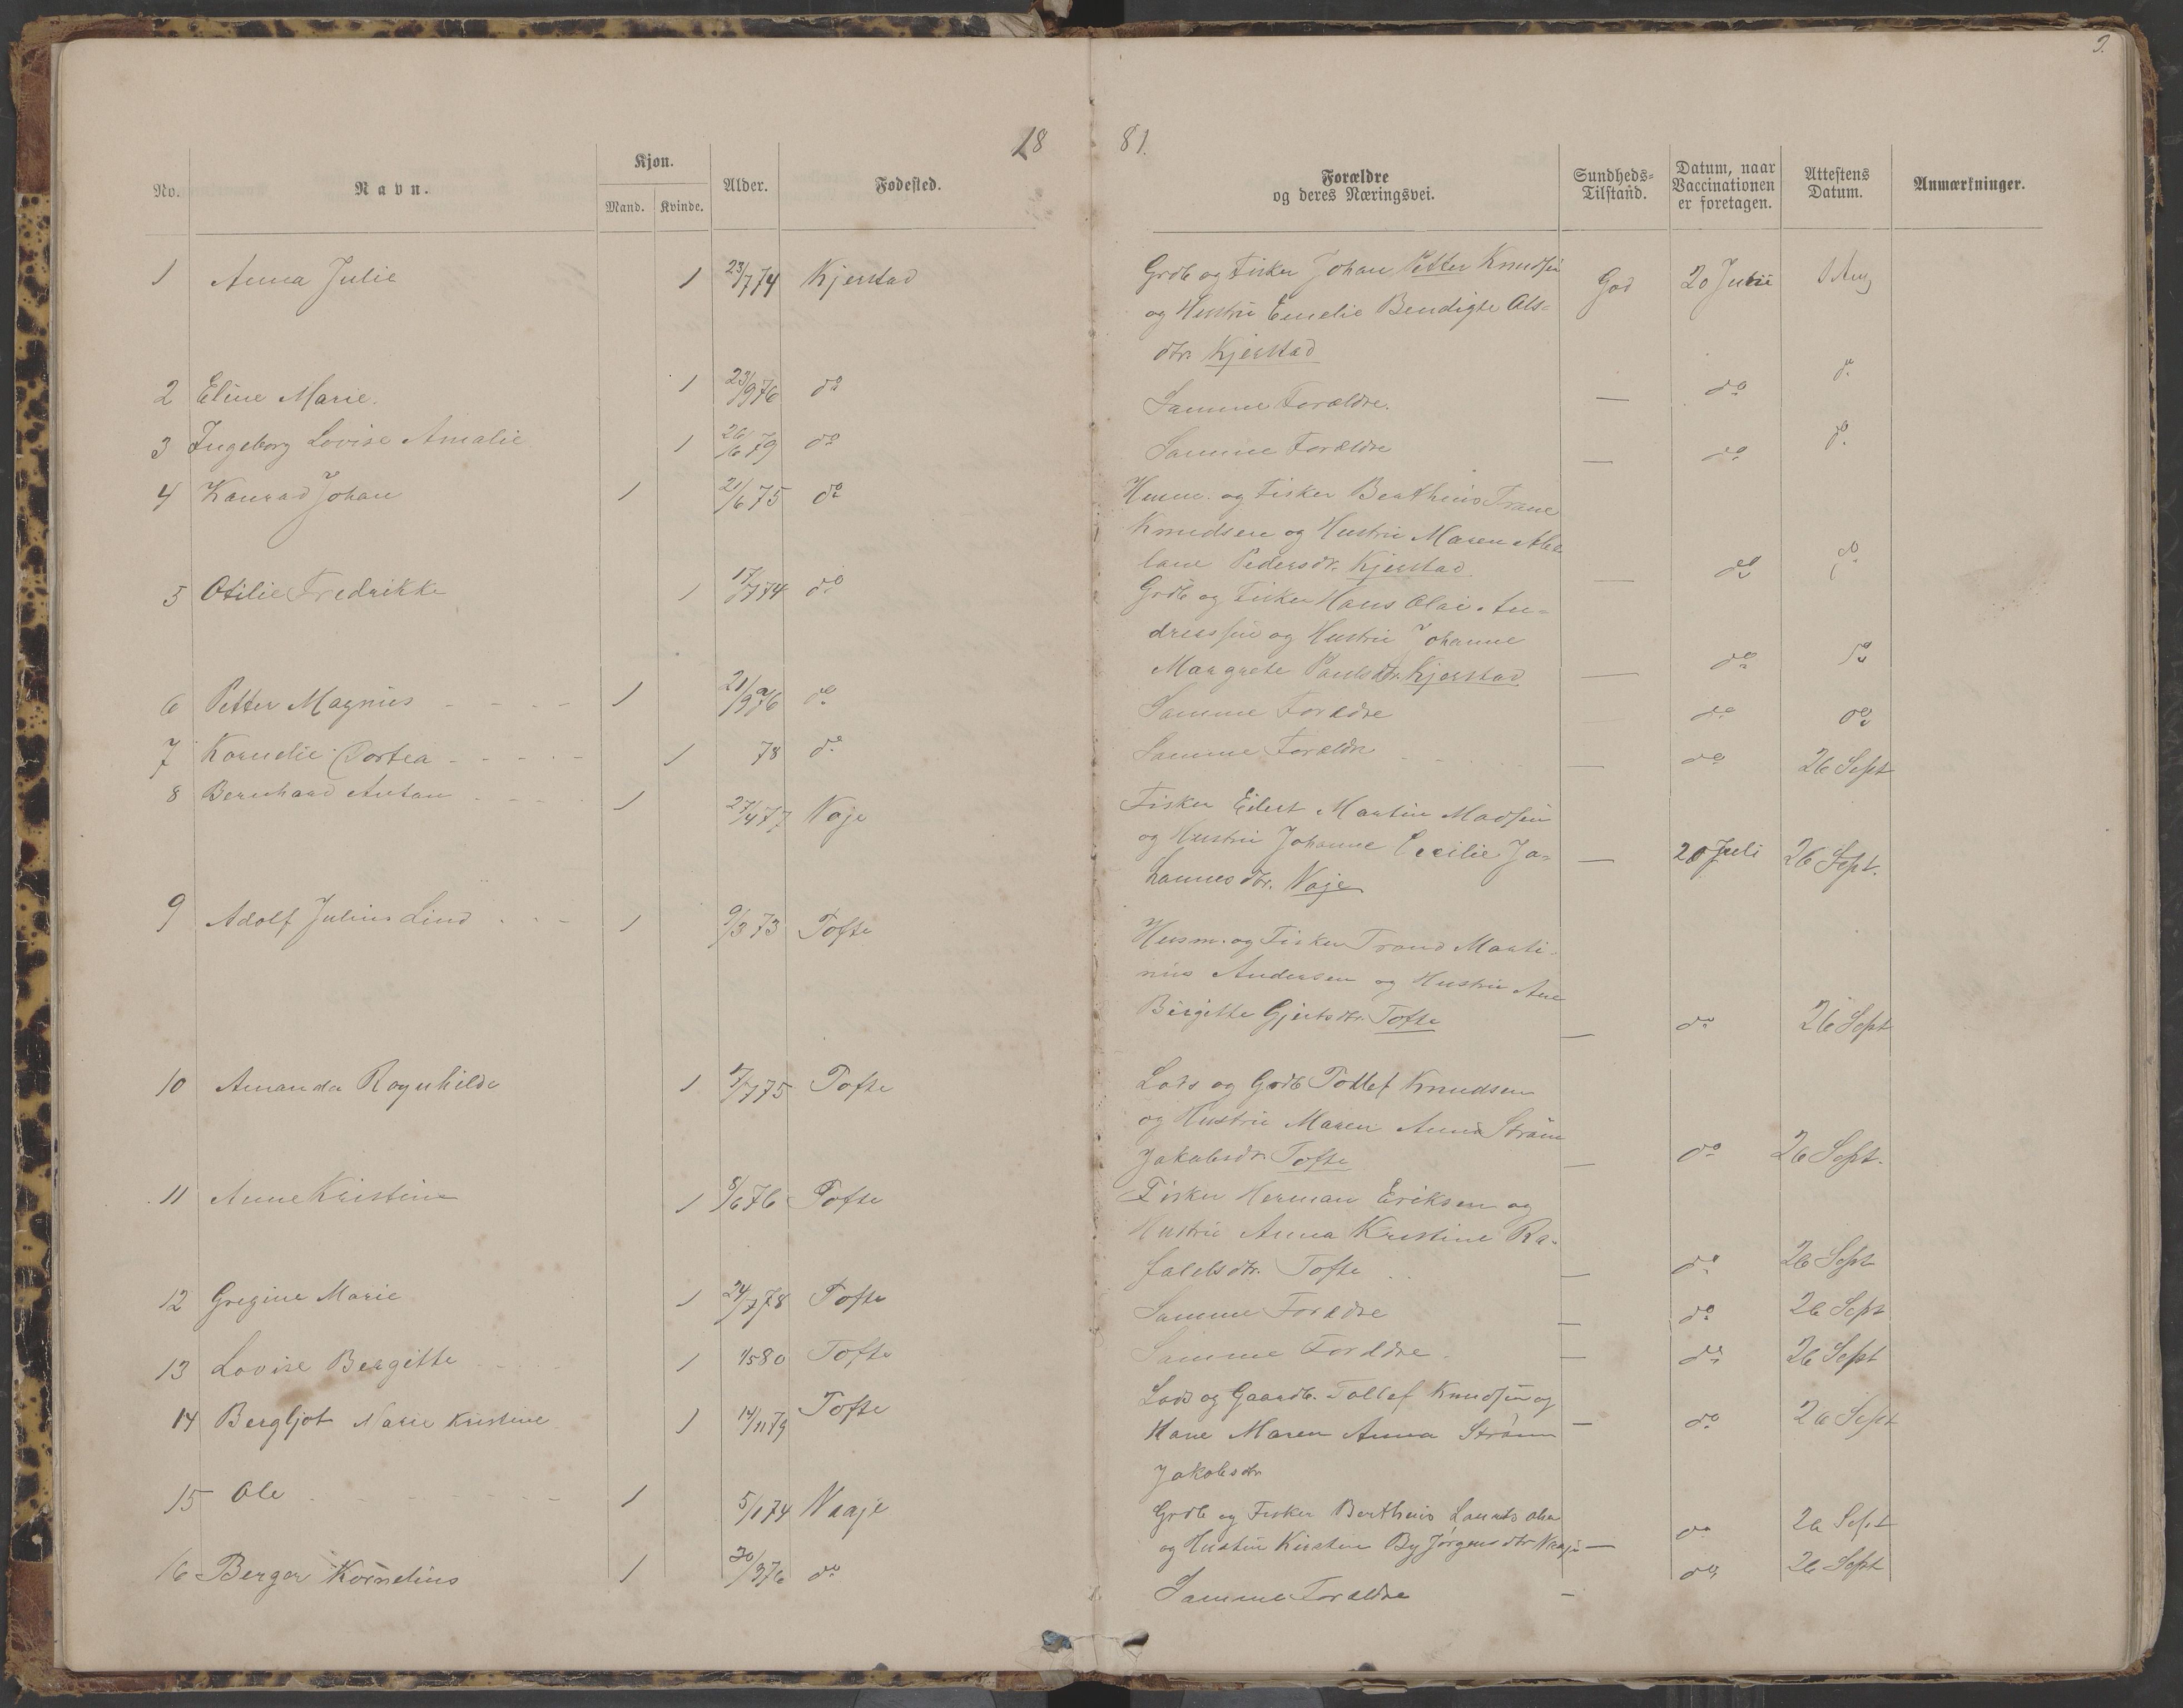 18 81.
9.
No.
Navn.
Kjøn.
Mand. Kvinde.
Alder.
Fødested.
Forældre
og deres Næringsvei.
Sundheds-
Tilstand.
Datum, naar
Vaccinationen
er foretagen.
Attestens
Datum.
Anmærkninger.
1 Anna Julie 1 23/7 74 Kjerstad Grdb og Fisker Johan Petter Knudsen God 20 Juli 1 Aug
og Hustru Emelie Bendigte Ols-
dtr. Kjerstad
2 Eline Marie. 1 23/9 76 do Samme Forældre. — do do
3 Ingeborg Lovise Amalie 1 26/6 79 do Samme Forældre — do do
4 Konrad Johan 1 21/6 75 do Husm. og Fisker Berthius Trane
Knudsen og Hustru Maren
Pedersdr. Kjerstad — do do
5 Otilie Fredrikke 1 17/7 74 do Grdb og Fisker Hans Olai An-
dressen og Hustru Johanne
Margrete Paulsdtr. Kjerstad — do do
6 Petter Magnus - - - - 1 21/9 76 do Samme Forældre do do
7 Kornelie Dortea - - - - 1 78 do Samme Forældre — do 26 Sept
8 Bernhard Antan - - - 1 27/4 77 Naje Fisker Eilert Martin Madsen
og Hustru Johanne Cecilie Jo-
hannesdtr. Naje — 20 Juli 26 Sept.
9 Adolf Julius Lind - - - 1 9/3 73 Tofte Husm. og Fisker Trond Marti-
nus Andersen og Hustru Ane
Birgitte Gjertsdtr. Tofte — do 26 Sept
10 Amanda Ragnhilde 1 7/7 75 Tofte Lods og Grdb Tollef Knudsen
og Hustru Maren Anna Strøm
Jakobsdr. Tofte — do 26 Sept.
11 Anne Kristine 1 8/6 76 Tofte Fisker Herman Eriksen og
Hustru Anna Kristine Ra-
faelsdtr. Tofte — do 26 Sept
12 Gregine Marie 1 24/7 78 Tofte Samme Forældre — do 26 Sept
13 Lovise Bergitte 1 1/5 80 Tofte Samme Forældre. — do 26 Sept
14 Bergljot Marie Kristine 1 14/11 79 Tofte Lods og Gaardb. Tollef Knudsen og
Kone Maren Anna Strøm — do 26 Sept
Jakobsdtr
15 Ole - - - - 1 5/1 74 Naaje Grdb og Fisker Berthius
og Hustru Kirsten By Jørgensdtr Naaje — do 26 Sept
16 Berger Kornelius 1 30/3 76 do Samme Forældre — do 26 Sept